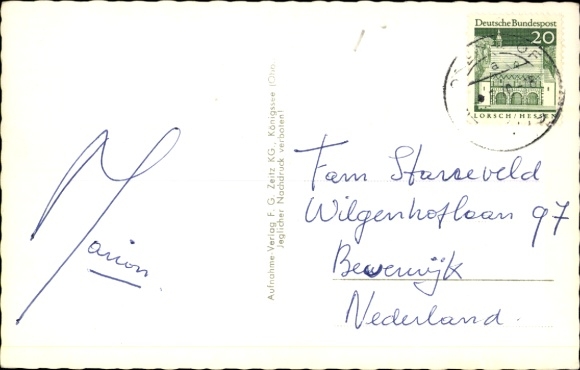 Marion.
Aufnahme-Verlag F. G. Zeitz KG., Königssee (Obb.
Jeglicher Nachdruck verboten)
Deutsche Bundespost
20
LORSCH/HESSEN
Fam Starreveld
Wilgenhoflaan 97
Beverwijk
Nederland.